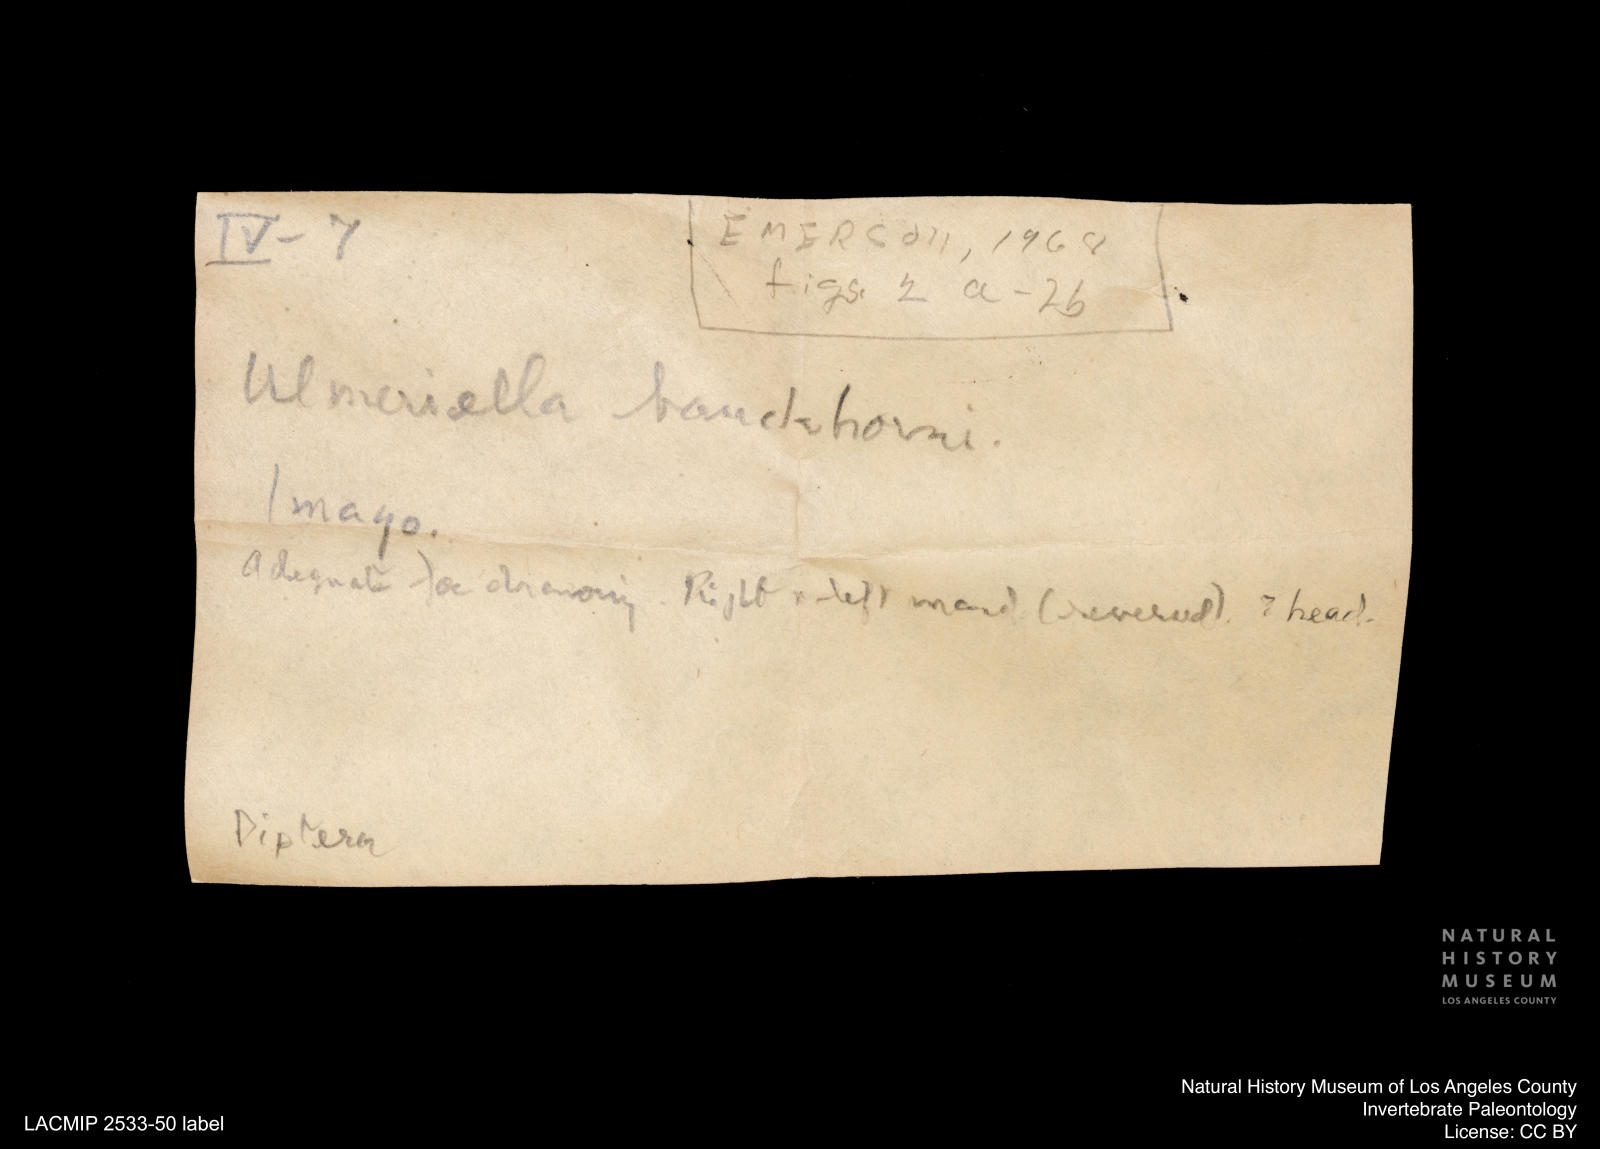 IV-7
EMERSON, 1968
figs. 2 a-2b
Ulmeriella
Imago.
Adequate for drawing. Right & left mand. (reversed). ? head.
Diptera
NATURAL
HISTORY
MUSEUM
LOS ANGELES COUNTY
Natural History Museum of Los Angeles County
Invertebrate Paleontology
License: CC BY
LACMIP 2533-50 label